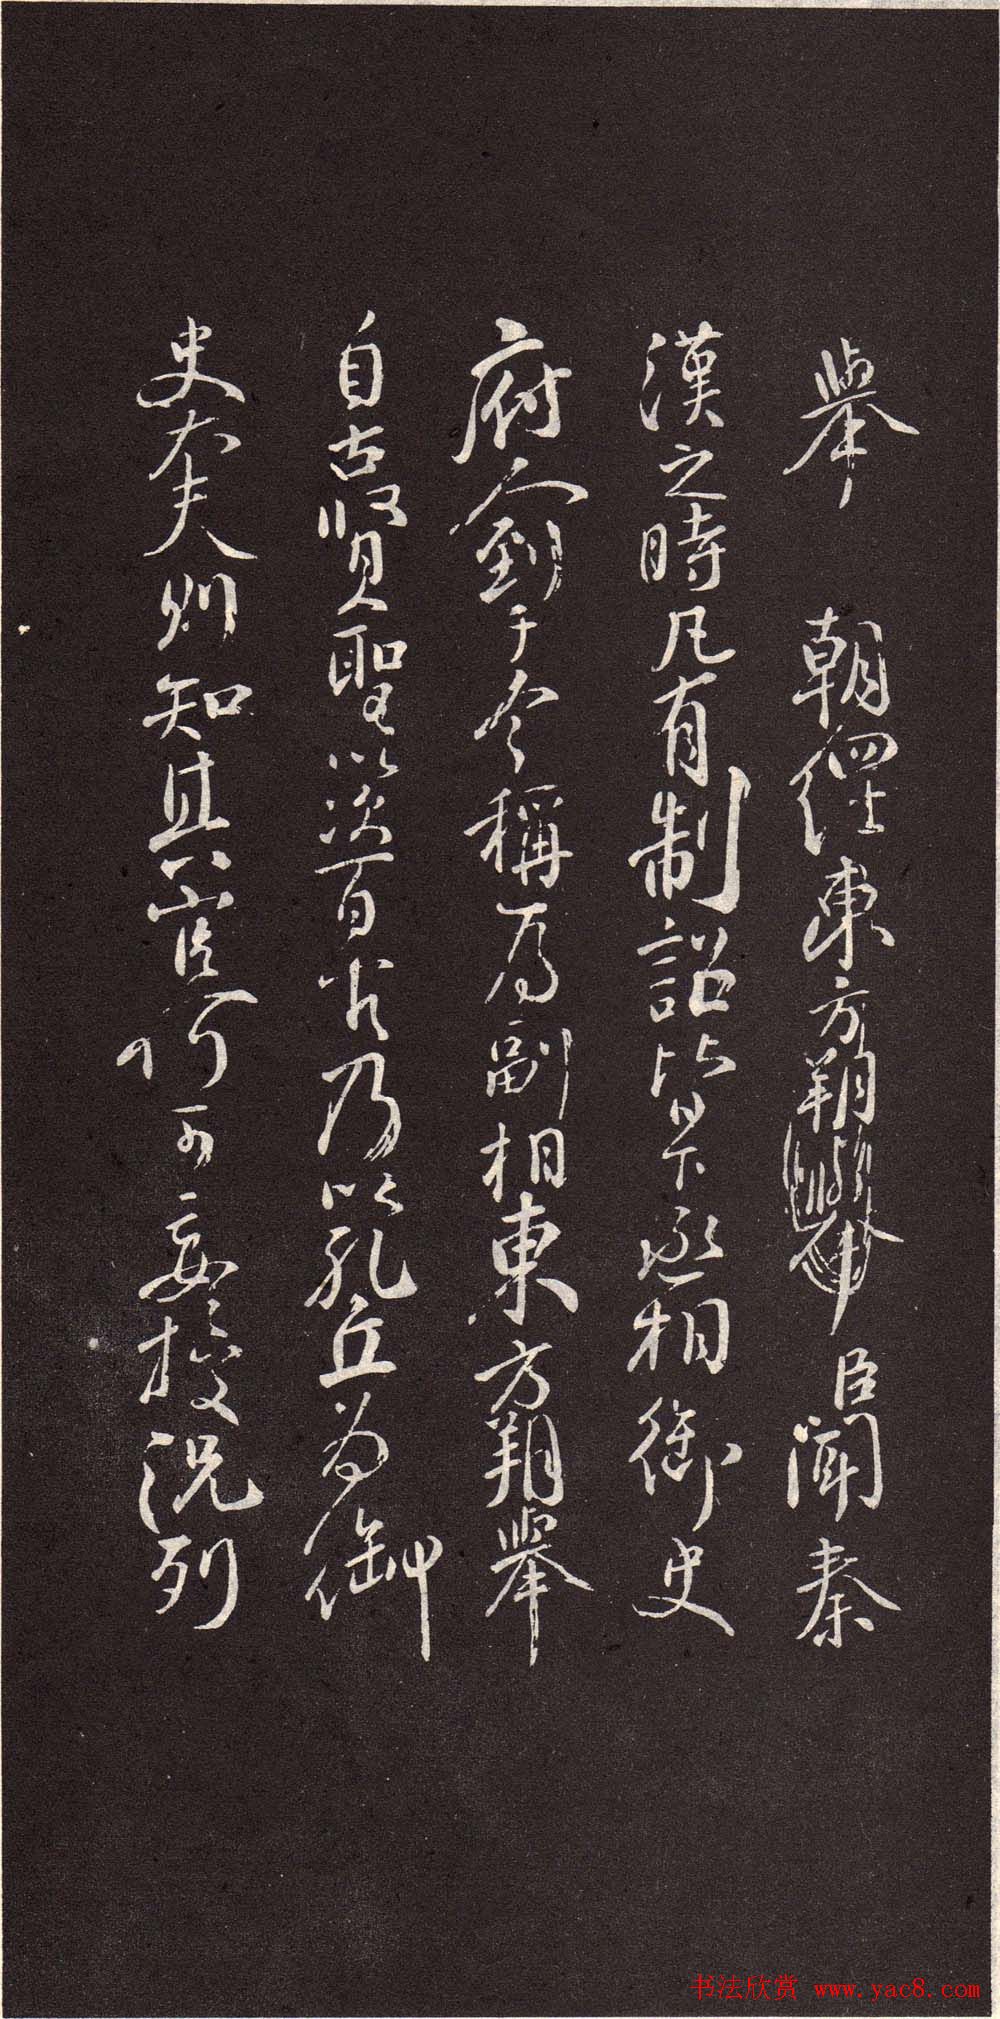 舉 朝經東方朔舉臣聞秦
漢之時凡有制詔皆下丞相御史
府到于今稱為副相東方朔舉
自古賢聖以次百官乃以孔丘為御
史大夫則知其官何可妄授況列
书法欣赏 www.yac8.com